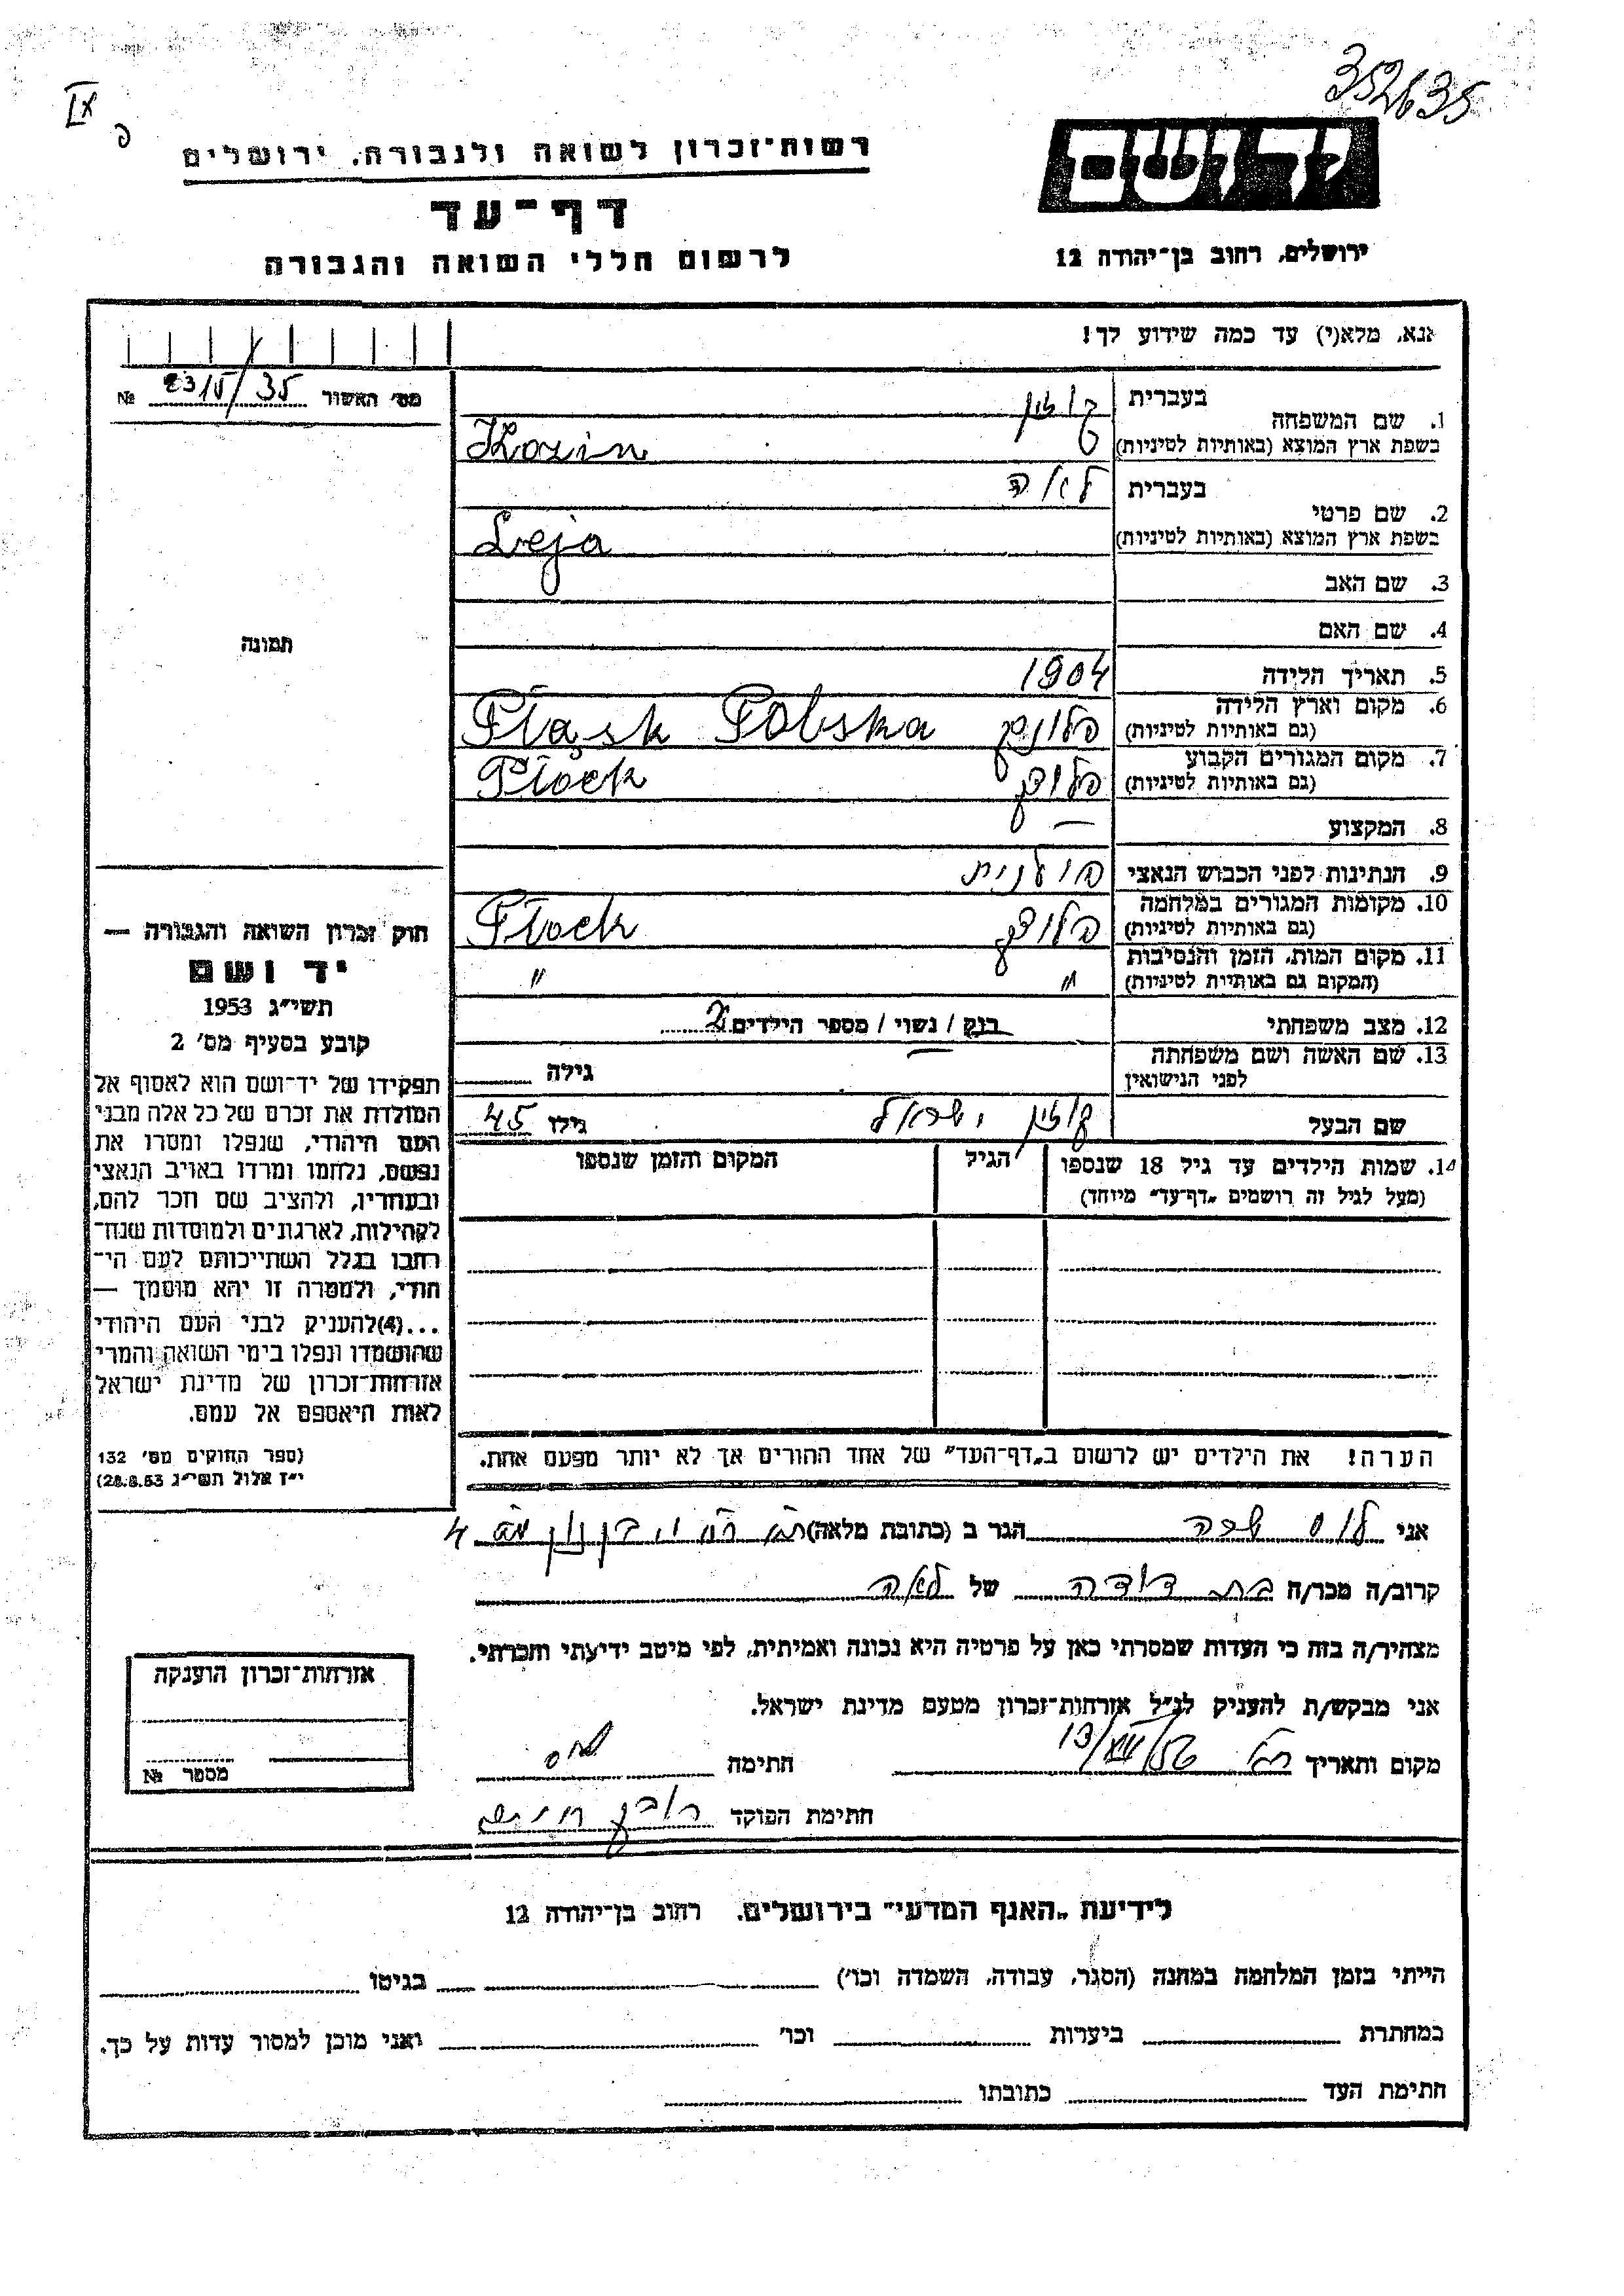 352635
IX
פ
יד ושם
רשות־זכרון לשואה ולגבורה, ירושלים
דף־עד
לרשום חללי השואה והגבורה
ירושלים, רחוב בן־יהודה 12
אנא, מלא(י) עד כמה שידוע לך!
מס׳ האשור 2315/35 №
1. שם המשפחה
בעברית
בשפת ארץ המוצא (באותיות לטיניות) Kozin
2. שם פרטי
בעברית לאה
בשפת ארץ המוצא (באותיות לטיניות) Leja
3. שם האב
4. שם האם
5. תאריך הלידה 1904
6. מקום וארץ הלידה
(גם באותיות לטיניות) פלונסק Płąsk Polska
7. מקום המגורים הקבוע
(גם באותיות לטיניות) פלוצק Płock
8. המקצוע —
9. הנתינות לפני הכבוש הנאצי פולנית
10. מקומות המגורים במלחמה
(גם באותיות לטיניות) פלוצק Płock
11. מקום המות, הזמן והנסיבות
(המקום גם באותיות לטיניות) " "
12. מצב משפחתי רווק / נשוי / מספר הילדים 2
13. שם האשה ושם משפחתה
לפני הנישואין — גילה
שם הבעל ישראל גילו 45
14. שמות הילדים עד גיל 18 שנספו הגיל המקום והזמן שנספו
(מעל לגיל זה רושמים „דף־עד" מיוחד)
הערה! את הילדים יש לרשום ב„דף־העד" של אחד ההורים אך לא יותר מפעם אחת.
תמונה
חוק זכרון השואה והגבורה —
יד ושם
תשי״ג 1953
קובע בסעיף מס׳ 2
תפקידו של יד־ושם הוא לאסוף אל
המולדת את זכרם של כל אלה מבני
העם היהודי, שנפלו ומסרו את
נפשם, נלחמו ומרדו באויב הנאצי
ובעוזריו, ולהציב שם וזכר להם,
לקהילות, לארגונים ולמוסדות שנח־
רבו בגלל השתייכותם לעם הי־
הודי, ולמטרה זו יהא מוסמך —
...(4)להעניק לבני העם היהודי
שהושמדו ונפלו בימי השואה והמרי
אזרחות־זכרון של מדינת ישראל
לאות היאספם אל עמם.
(ספר החוקים מס׳ 132
י״ז אלול תשי״ג 28.8.53)
אני שרה הגר ב (כתובת מלאה) 4
קרוב/ה מכר/ה בת דודה של לאה
מצהיר/ה בזה כי העדות שמסרתי כאן על פרטיה היא נכונה ואמיתית, לפי מיטב ידיעתי והכרתי.
אני מבקש/ת להעניק לנ״ל אזרחות־זכרון מטעם מדינת ישראל.
מקום ותאריך חתימה
חתימת הפוקד
אזרחות־זכרון הוענקה
מספר №
לידיעת „האגף המדעי" בירושלים, רחוב בן־יהודה 12
הייתי בזמן המלחמה במחנה (הסגר, עבודה, השמדה וכו׳) בגיטו
במחתרת ביערות וכו׳ ואני מוכן למסור עדות על כך.
חתימת העד כתובתו